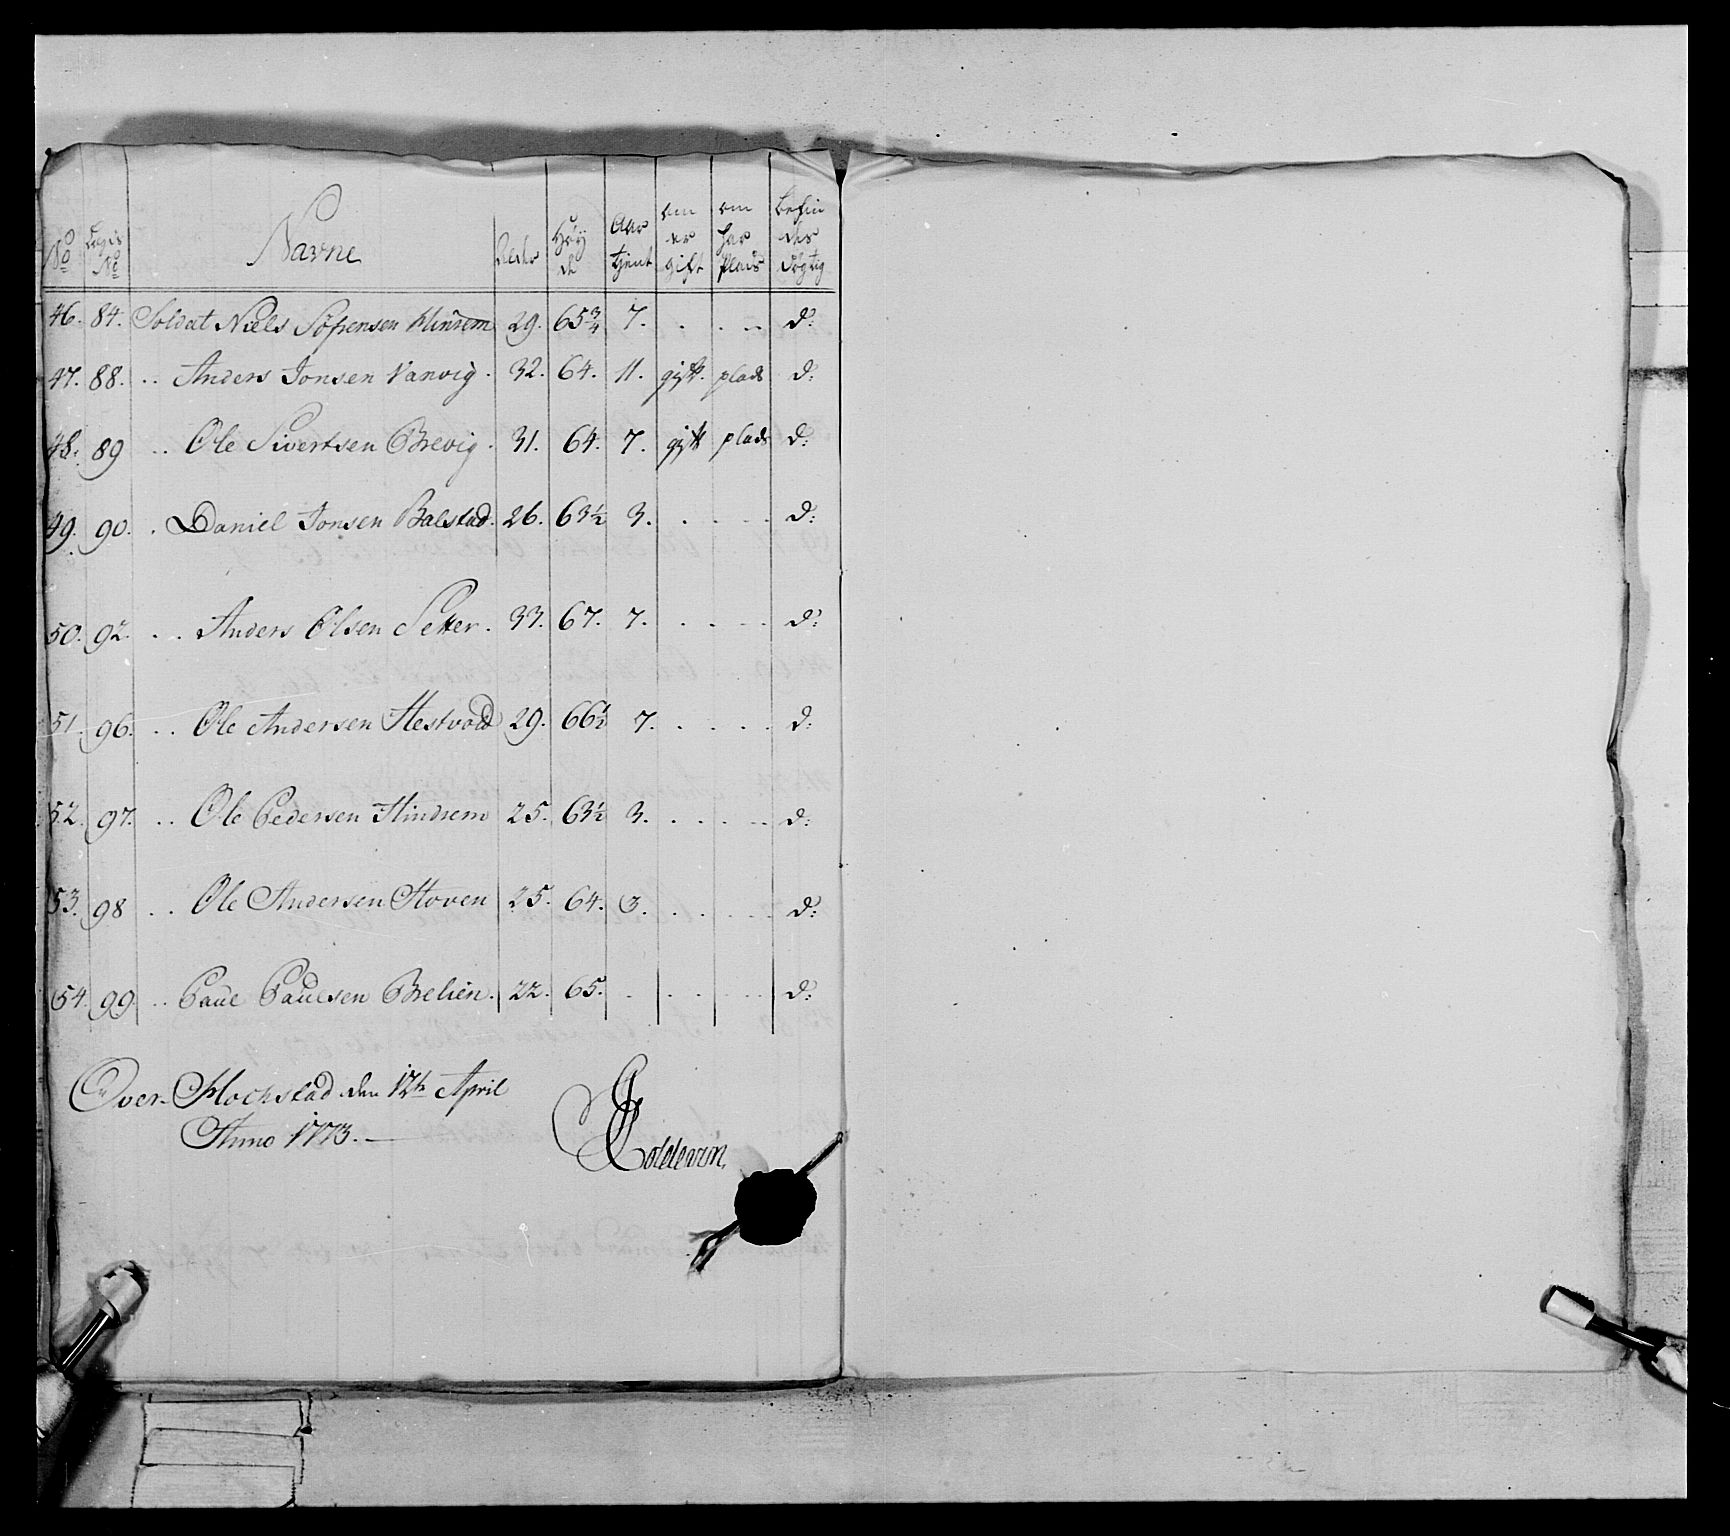 No Legds No Navne Alder Høyde Aar tjent om er gift om har Plads befindes dygtig
46. 84. Soldat Niels Sørensen 29. 65¾ 7. . . . d:
47. 88. .. Anders Jonsen Vanvig. 32. 64. 11. gift. plads d:
48. 89 .. Ole Sivertsen Brevig. 31. 64. 7. gift plads d:
49. 90. . Daniel Jonsen Balstad. 26. 63½ 3. . . . d:
50. 92. .. Anders Olsen Setter. 33. 67. 7. . . . d:
51. 96. .. Ole Andersen Hestvold 29. 66½ 7. . . . d:
52. 97. .. Ole Pedersen Hindrem 25. 63½ 3. . . . d:
53. 98 .. Ole Andersen Hoven 25. 64. 3. . . . d:
54. 99. .. Paul Paulsen Brelien. 22. 65. . . . d:
Over-Mochstad den 12te April
Anno 1773.
Coldevin.